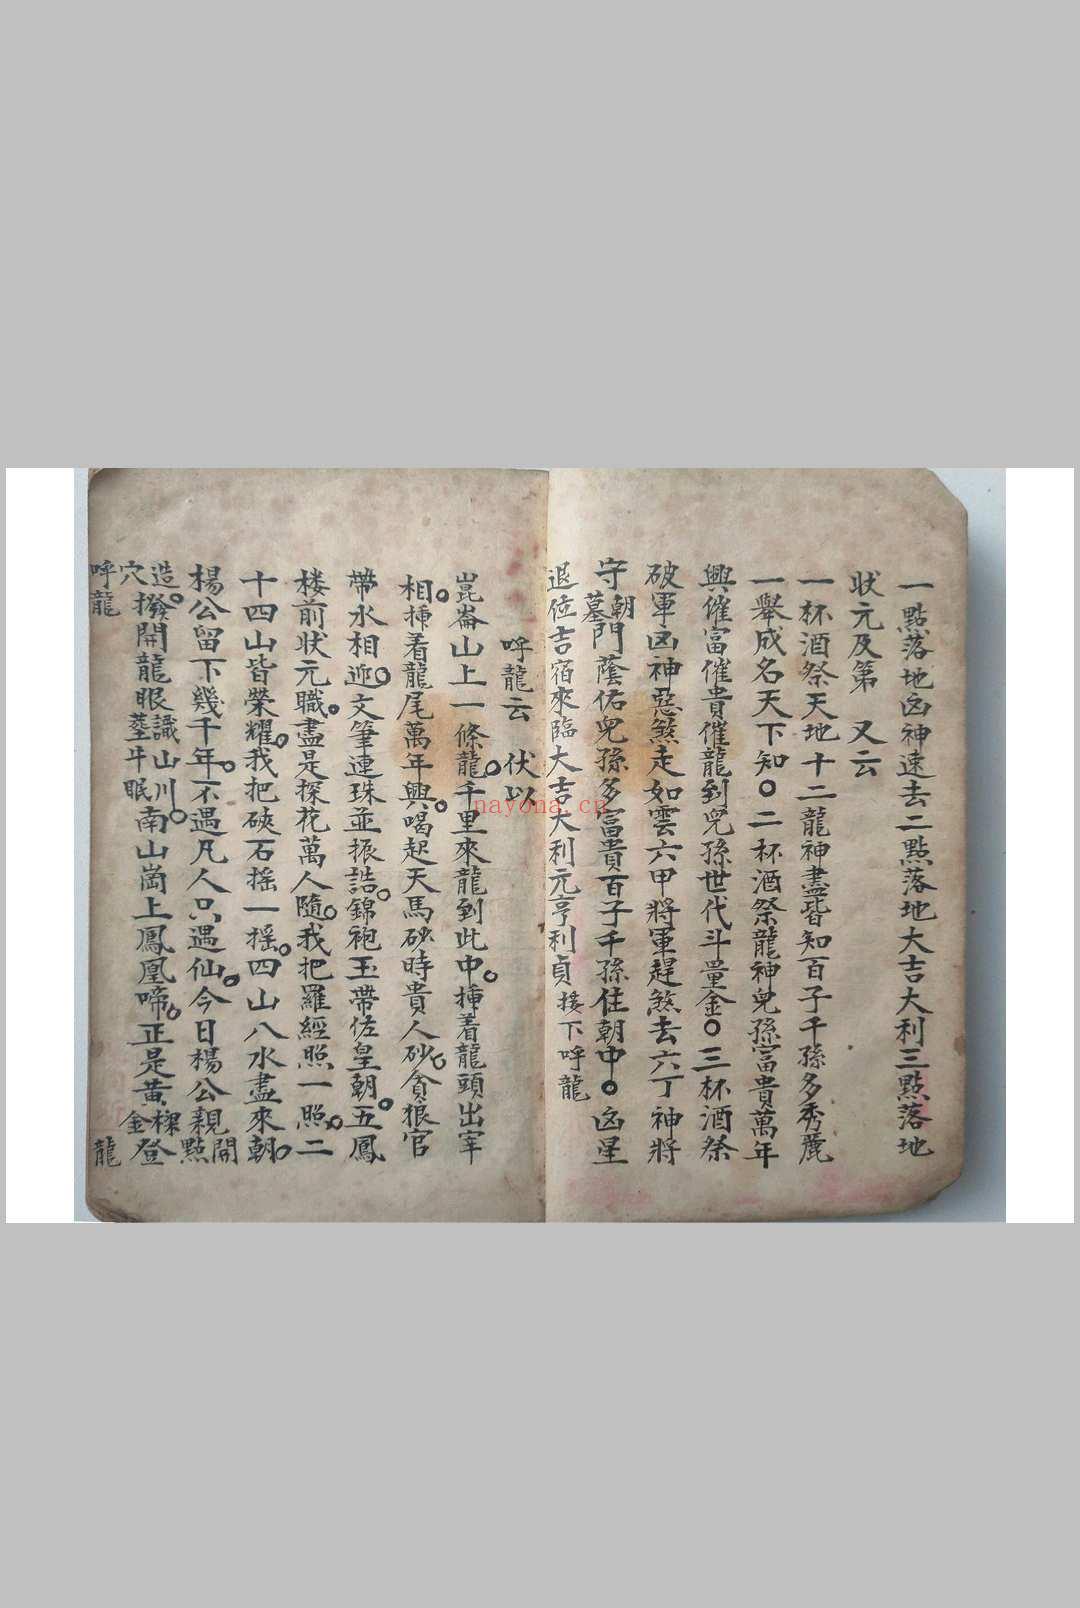 一點落地凶神速去二點落地大吉大利三點落地
状元及第 又云
一杯酒祭天地十二龍神盡皆知百子千孫多秀麗
一舉成名天下知〇二杯酒祭龍神兒孫富貴萬年
興催富催貴催龍到兒孫世代斗量金〇三杯酒祭
破軍凶神惡煞走如雲六甲將軍趕煞去六丁神將
守朝墓門蔭佑兒孫多富貴百子千孫住朝中〇凶星
退位吉宿來臨大吉大利元亨利貞接下呼龍
呼龍云 伏以
崑崙山上一條龍。千里來龍到此中。揷着龍頭出宰
相。揷着龍尾萬年興。喝起天馬砂時貴人砂。貪狠官
帶水相迎。文筆連珠並振誥。錦袍玉帶佐皇朝。五鳳
楼前状元職。盡是探花萬人隨。我把羅經照一照。二
十四山皆榮耀。我把硤石摇一摇。四山八水盡來朝。
楊公留下幾千年。不遇凡人只遇仙。今日楊公親點開
造穴。撥開龍眼識山川。南山崗上鳳凰啼。正是黃金登
墓斗眠
呼龍 龍
nayona.cn